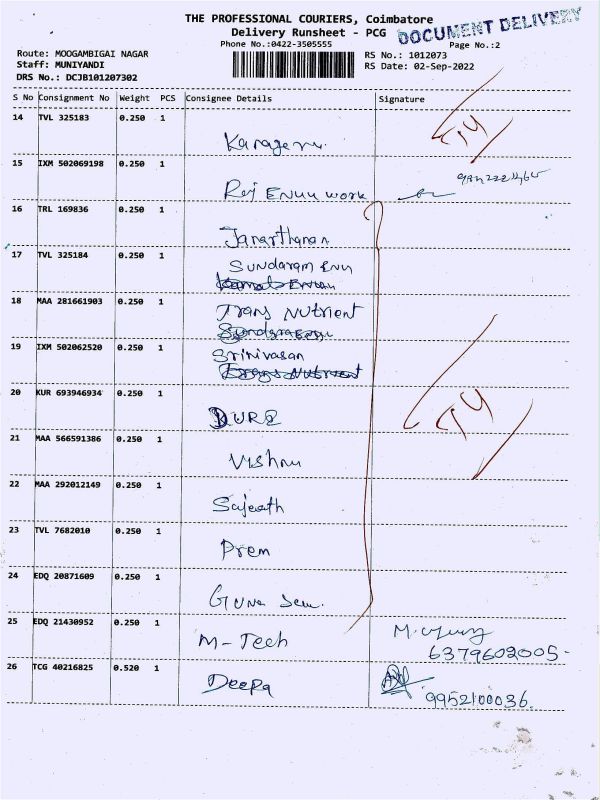 THE PROFESSIONAL COURIERS, Coimbatore
Delivery Runsheet - PCG
DOCUMENT DELIVERY
Phone No.:0422-3505555
Page No.:2
Route: MOOGAMBIGAI NAGAR
RS No.: 1012073
Staff: MUNIYANDI
RS Date: 02-Sep-2022
DRS No.: DCJB101207302
S No Consignment No Weight PCS Consignee Details Signature
14 TVL 325183 0.250 1
15 IXM 502069198 0.250 1
Raj Enuu work
16 TRL 169836 0.250 1
Janarthanan
17 TVL 325184 0.250 1
Sundaram Enu
18 MAA 281661903 0.250 1
Trans Nutrient
19 IXM 502062520 0.250 1
Srinivasan
20 KUR 693946934 0.250 1
21 MAA 566591386 0.250 1
Vishnu
22 MAA 292012149 0.250 1
Sajeeth
23 TVL 7682010 0.250 1
Prem
24 EDQ 20871609 0.250 1
Guna
25 EDQ 21430952 0.250 1
M-Tech
6379602005-
26 TCG 40216825 0.520 1
Deepa
9952100036.